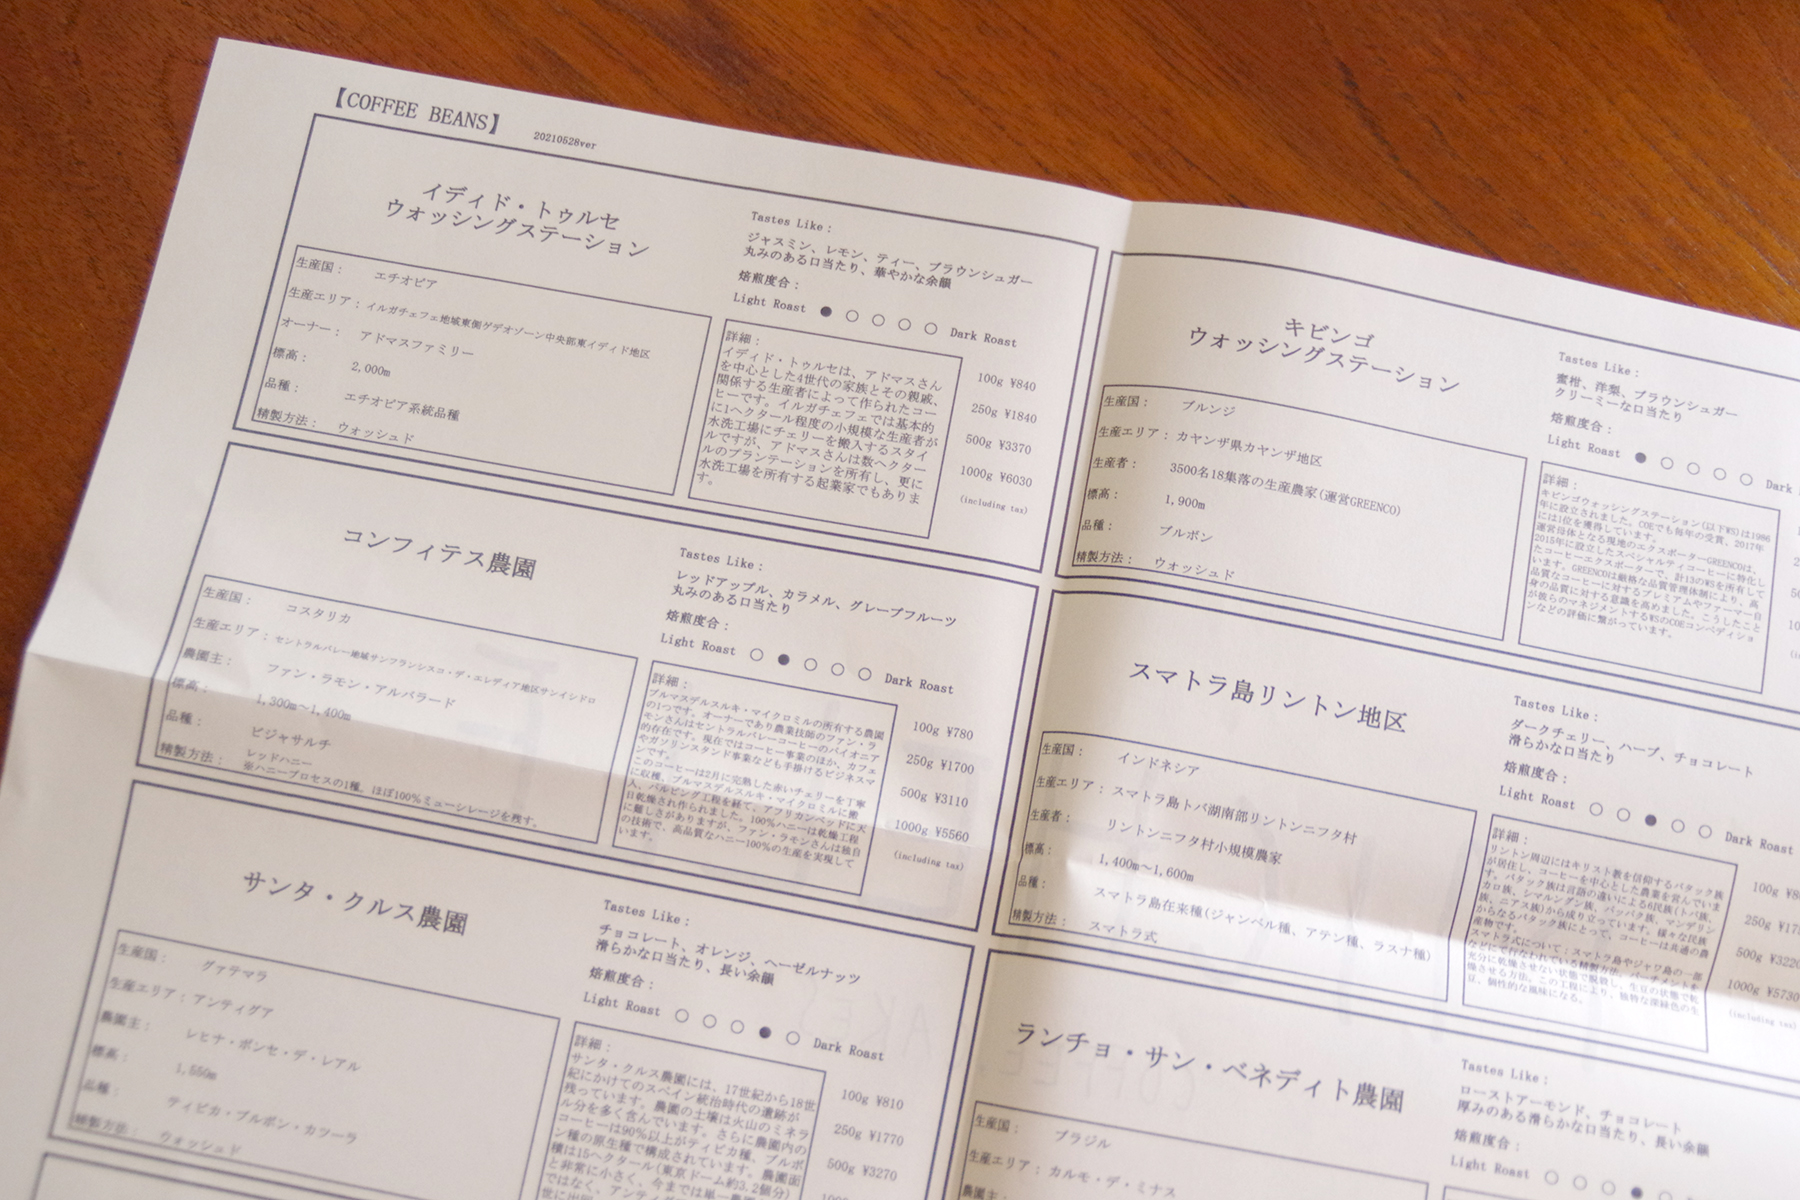 【COFFEE BEANS】 20210528ver
イディド・トゥルセ
ウォッシングステーション
生産国： エチオピア
生産エリア：イルガチェフェ地域東側ゲデオゾーン中央部東イディド地区
オーナー： アドマスファミリー
標高： 2,000m
品種： エチオピア系統品種
精製方法： ウォッシュド
Tastes Like：
ジャスミン、レモン、ティー、ブラウンシュガー
丸みのある口当たり、華やかな余韻
焙煎度合：
Light Roast ●○○○○ Dark Roast
詳細：
イディド・トゥルセは、アドマスさん
を中心とした4世代の家族とその親戚、
関係する生産者によって作られたコー
ヒーです。イルガチェフェでは基本的
に1ヘクタール程度の小規模な生産者が
水洗工場にチェリーを搬入するスタイ
ルですが、アドマスさんは数ヘクター
ルのプランテーションを所有し、更に
水洗工場を所有する起業家でもありま
す。
100g ¥840
250g ¥1840
500g ¥3370
1000g ¥6030
(including tax)
キビンゴ
ウォッシングステーション
生産国： ブルンジ
生産エリア：カヤンザ県カヤンザ地区
生産者： 3500名18集落の生産農家(運営GREENCO)
標高： 1,900m
品種： ブルボン
精製方法： ウォッシュド
Tastes Like：
蜜柑、洋梨、ブラウンシュガー
クリーミーな口当たり
焙煎度合：
Light Roast ●○○○○ Dark
詳細：
キビンゴウォッシングステーション(以下WS)は1986
年に設立されました。COEでも毎年の受賞、2017年
には1位を獲得しています。
運営母体となる現地のエクスポーターGREENCOは、
2015年に設立したスペシャルティコーヒーに特化し
たコーヒーエクスポーターで、計13のWSを所有して
います。GREENCOは厳格な品質管理体制により、高
品質なコーヒーに対するプレミアムやファーマー自
身の品質に対する意識を高めました。こうしたこと
が彼らのマネジメントするWSのCOEコンペティショ
ンなどの評価に繋がっています。
コンフィテス農園
生産国： コスタリカ
生産エリア：セントラルバレー地域サンフランシスコ・デ・エレディア地区サンイシドロ
農園主： ファン・ラモン・アルバラード
標高： 1,300m～1,400m
品種： ビジャサルチ
精製方法： レッドハニー
※ハニープロセスの1種。ほぼ100%ミューシレージを残す。
Tastes Like：
レッドアップル、カラメル、グレープフルーツ
丸みのある口当たり
焙煎度合：
Light Roast ○●○○○ Dark Roast
詳細：
ブルマスデルスルキ・マイクロミルの所有する農園
の1つです。オーナーであり農業技師のファン・ラ
モンさんはセントラルバレーコーヒーのパイオニア
的存在です。現在ではコーヒー事業のほか、カフェ
やガソリンスタンド事業なども手掛けるビジネスマ
ンです。
このコーヒーは2月に完熟した赤いチェリーを丁寧
に収穫、ブルマスデルスルキ・マイクロミルに搬
入、パルピング工程を経て、アフリカンベッドに天
日乾燥され作られました。100%ハニーは乾燥工程
に難しさがありますが、ファン・ラモンさんは独自
の技術で、高品質なハニー100%の生産を実現して
います。
100g ¥780
250g ¥1700
500g ¥3110
1000g ¥5560
(including tax)
スマトラ島リントン地区
生産国： インドネシア
生産エリア：スマトラ島トバ湖南部リントンニフタ村
生産者： リントンニフタ村小規模農家
標高： 1,400m～1,600m
品種： スマトラ島在来種(ジャンベル種、アテン種、ラスナ種)
精製方法： スマトラ式
Tastes Like：
ダークチェリー、ハーブ、チョコレート
滑らかな口当たり
焙煎度合：
Light Roast ○○●○○ Dark Roast
詳細：
リントン周辺にはキリスト教を信仰するバタック族
が居住し、コーヒーを中心とした農業を営んでいま
す。バタック族は言語の違いによる6民族(トバ族、
カロ族、シマルングン族、パッパク族、マンデリン
族、ニアス族)から成り立っています。様々な民族
からなるバタック族にとって、コーヒーは共通の農
産物です。
スマトラ式について：スマトラ島やジャワ島の一部
などにて行なわれている精製方法。パーチメントを
充分に乾燥させない状態で脱殻し、生豆の状態で乾
燥させる方法。この工程により、独特な深緑色の生
豆、個性的な風味になる。
100g
250g
500g ¥3220
1000g ¥5730
(including tax)
サンタ・クルス農園
生産国： グァテマラ
生産エリア：アンティグア
農園主： レヒナ・ポンセ・デ・レアル
標高： 1,550m
品種： ティピカ・ブルボン・カツーラ
精製方法： ウォッシュド
Tastes Like：
チョコレート、オレンジ、ヘーゼルナッツ
滑らかな口当たり、長い余韻
焙煎度合：
Light Roast ○○○●○ Dark Roast
詳細：
サンタ・クルス農園には、17世紀から18世
紀にかけてのスペイン統治時代の遺跡が
残っています。農園の土壌は火山のミネラ
ル分を多く含んでいます。さらに農園内の
コーヒーは90%以上がティピカ種、ブルボ
ン種の原生種で構成されています。農園面
積は15ヘクタール(東京ドーム約3.2個分)
と非常に小さく、今までは単一農園
ではなく、アンティグ
100g ¥810
250g ¥1770
500g ¥3270
ランチョ・サン・ベネディト農園
生産国： ブラジル
生産エリア：カルモ・デ・ミナス
Tastes Like：
ローストアーモンド、チョコレート
厚みのある滑らかな口当たり、長い余韻
焙煎度合：
Light Roast ○○○●○ Dark Roast